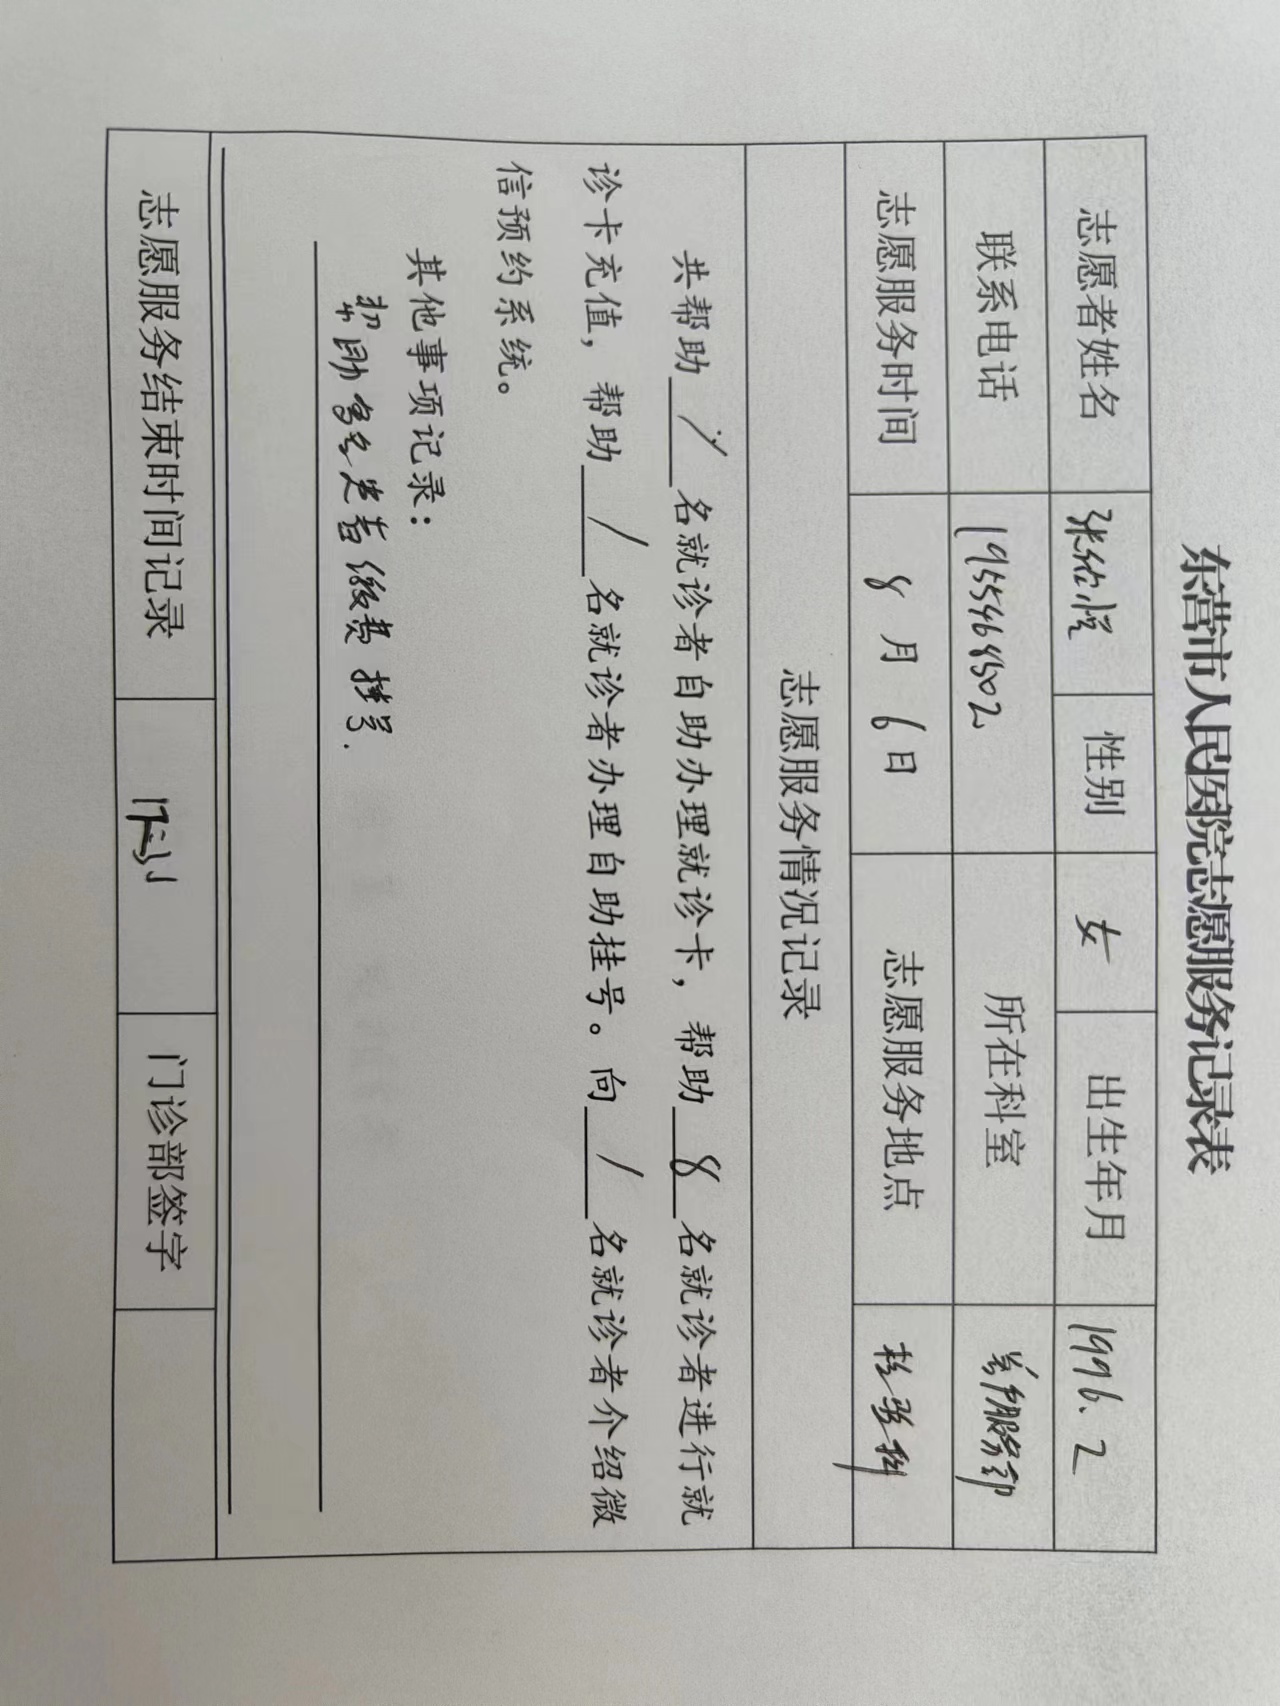 东营市人民医院志愿服务记录表
志愿者姓名 张 悦 性别 女 出生年月 1996.2
联系电话 所在科室 服务部
志愿服务时间 8月6日 志愿服务地点 检验科
志愿服务情况记录
共帮助 / 名就诊者自助办理就诊卡，帮助 8 名就诊者进行就
诊卡充值，帮助 / 名就诊者办理自助挂号。向 / 名就诊者介绍微
信预约系统。
其他事项记录：
帮助多名患者缴费挂号.
志愿服务结束时间记录 门诊部签字